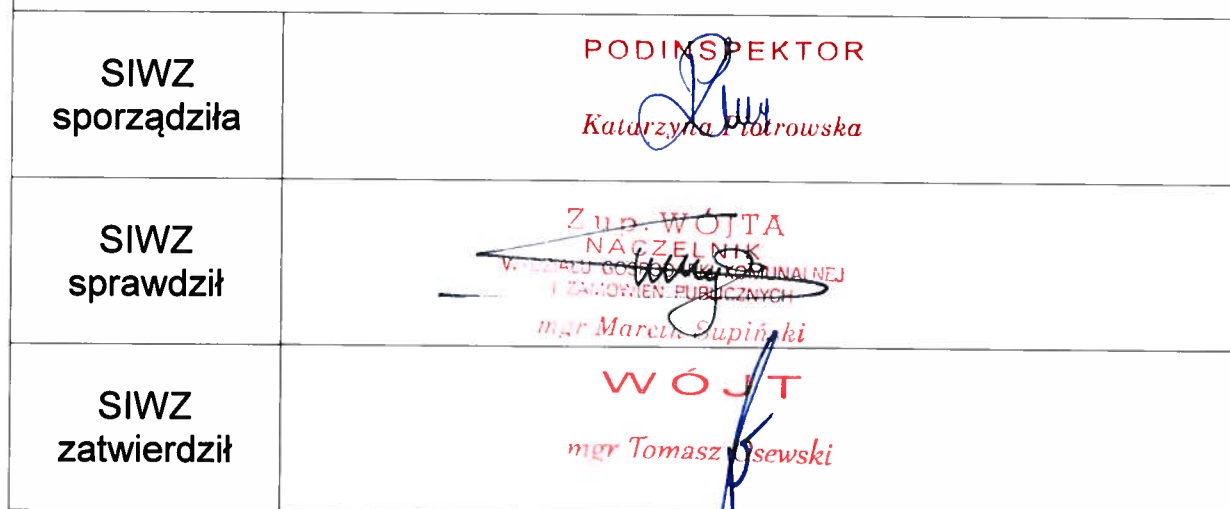 SIWZ
sporządziła
PODINSPEKTOR
Katarzyna Piotrowska
SIWZ
sprawdził
Z up. WÓJTA
NACZELNIK
WYDZIAŁU GOSPODARKI KOMUNALNEJ
I ZAMÓWIEŃ PUBLICZNYCH
mgr Marcin Supiński
SIWZ
zatwierdził
WÓJT
mgr Tomasz Osewski